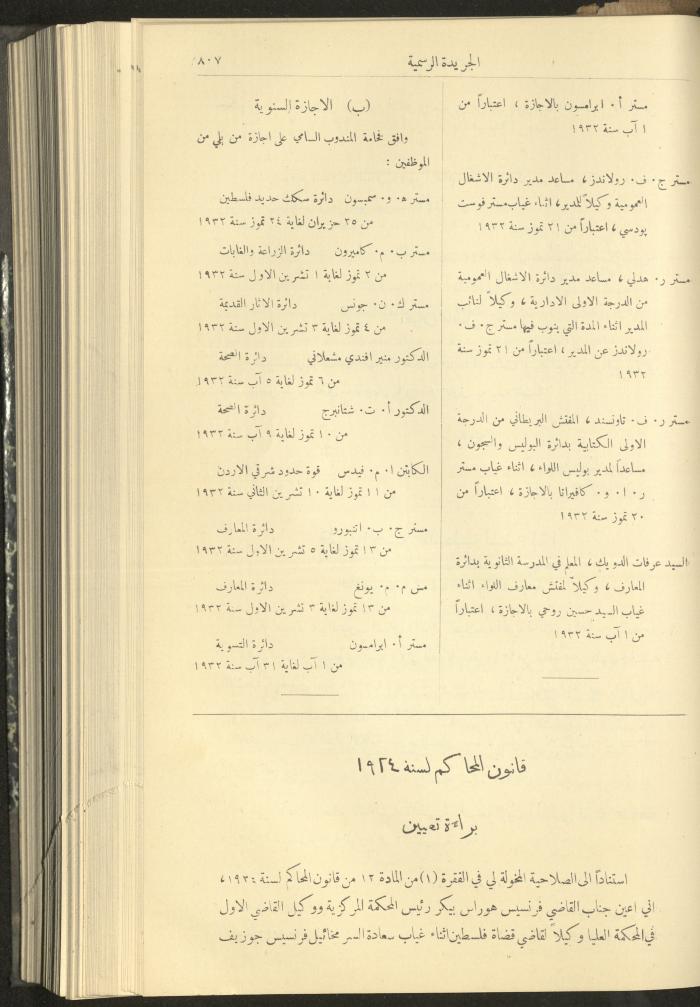 الجريدة الرسمية
٨٠٧
مستر أ٠ ابرامسون بالاجازة ، اعتباراً من
١ آب سنة ١٩٣٢
مستر ج٠ ف٠ رولاندز ، مساعد مدير دائرة الاشغال
العمومية وكيلاً للمدير، اثناء غياب مستر فوست
پودسي ، اعتباراً من ٢١ تموز سنة ١٩٣٢
مستر ر٠ هدلي ، مساعد مدير دائرة الاشغال العمومية
من الدرجة الاولى الادارية ، وكيلاً لنائب
المدير اثناء المدة التي ينوب فيها مستر ج٠ ف٠
رولاندز عن المدير ، اعتباراً من ٢١ تموز سنة
١٩٣٢
مستر ر٠ ف٠ تاونسند ، المفتش البريطاني من الدرجة
الاولى الكتابية بدائرة البوليس والسجون ،
مساعداً لمدير بوليس اللواء ، اثناء غياب مستر
ر٠ ا٠ و٠ كافيراتا بالاجازة ، اعتباراً من
٢٠ تموز سنة ١٩٣٢
السيد عرفات الدويك ، المعلم في المدرسة الثانوية بدائرة
المعارف ، وكيلاً لمفتش معارف اللواء اثناء
غياب السيد حسين روحي بالاجازة ، اعتباراً
من ١ آب سنة ١٩٣٢
(ب) الاجازة السنوية
وافق فخامة المندوب السامي على اجازة من يلي من
الموظفين :
مستر ه٠ و٠ سمبسون دائرة سكك حديد فلسطين
من ٢٥ حزيران لغاية ٢٤ تموز سنة ١٩٣٢
مستر ب٠ م٠ كاميرون دائرة الزراعة والغابات
من ٢ تموز لغاية ١ تشرين الاول سنة ١٩٣٢
مستر ك٠ ن٠ جونس دائرة الاثار القديمة
من ٤ تموز لغاية ٣ تشرين الاول سنة ١٩٣٢
الدكتور منير افندي مشعلاني دائرة الصحة
من ٦ تموز لغاية ٥ آب سنة ١٩٣٢
الدكتور أ٠ ت٠ شتانبرج دائرة الصحة
من ١٠ تموز لغاية ٩ آب سنة ١٩٣٢
الكابتن ا٠ م٠ فيدس قوة حدود شرقي الاردن
من ١١ تموز لغاية ١٠ تشرين الثاني سنة ١٩٣٢
مستر ج٠ ب٠ اتنبورو دائرة المعارف
من ١٣ تموز لغاية ٥ تشرين الاول سنة ١٩٣٢
مس م٠ م٠ يونغ دائرة المعارف
من ١٣ تموز لغاية ٣ تشرين الاول سنة ١٩٣٢
مستر أ٠ ابرامسون دائرة التسوية
من ١ آب لغاية ٣١ آب سنة ١٩٣٢
قانون المحاكم لسنة ١٩٢٤
براءة تعيين
استناداً الى الصلاحية المخولة لي في الفقرة (١) من المادة ١٢ من قانون المحاكم لسنة ١٩٣٤،
اني اعين جناب القاضي فرنسيس هوراس بيكر رئيس المحكمة المركزية ووكيل القاضي الاول
في المحكمة العليا وكيلاً لقاضي قضاة فلسطين اثناء غياب سعادة السر مخائيل فرنسيس جوزيف